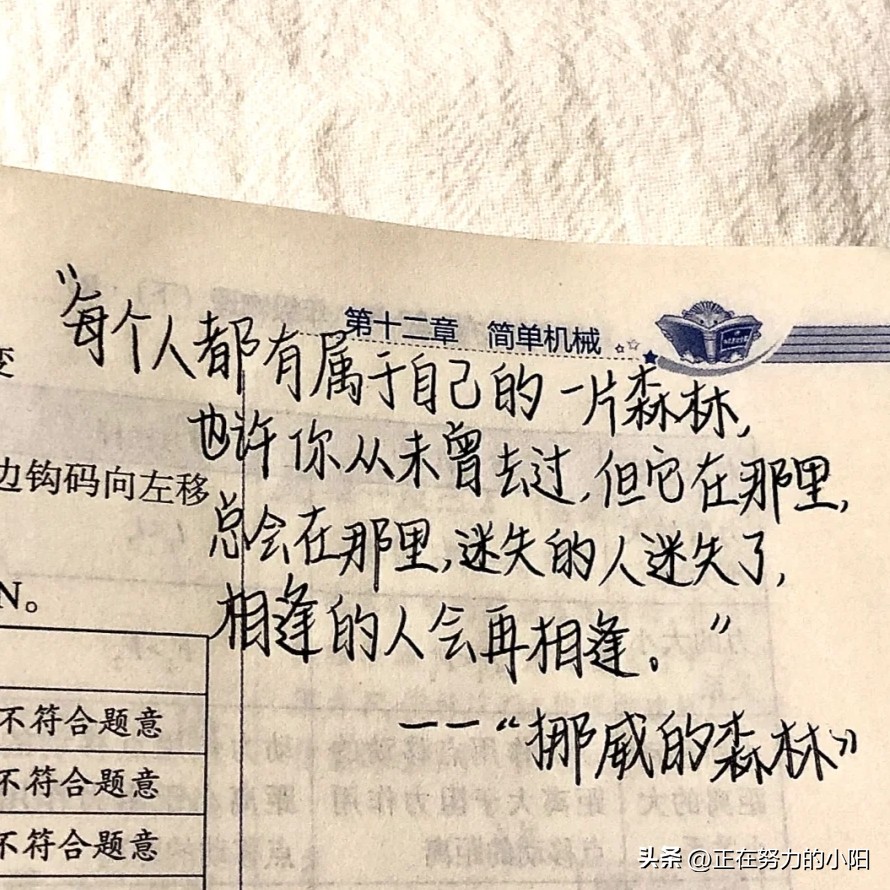 第十二章 简单机械
"每个人都有属于自己的一片森林,
也许你从未曾去过,但它在那里,
总会在那里,迷失的人迷失了,
相逢的人会再相逢。"
——"挪威的森林"
变
边钩码向左移
N。
不符合题意
不符合题意
不符合题意
头条 @正在努力的小阳